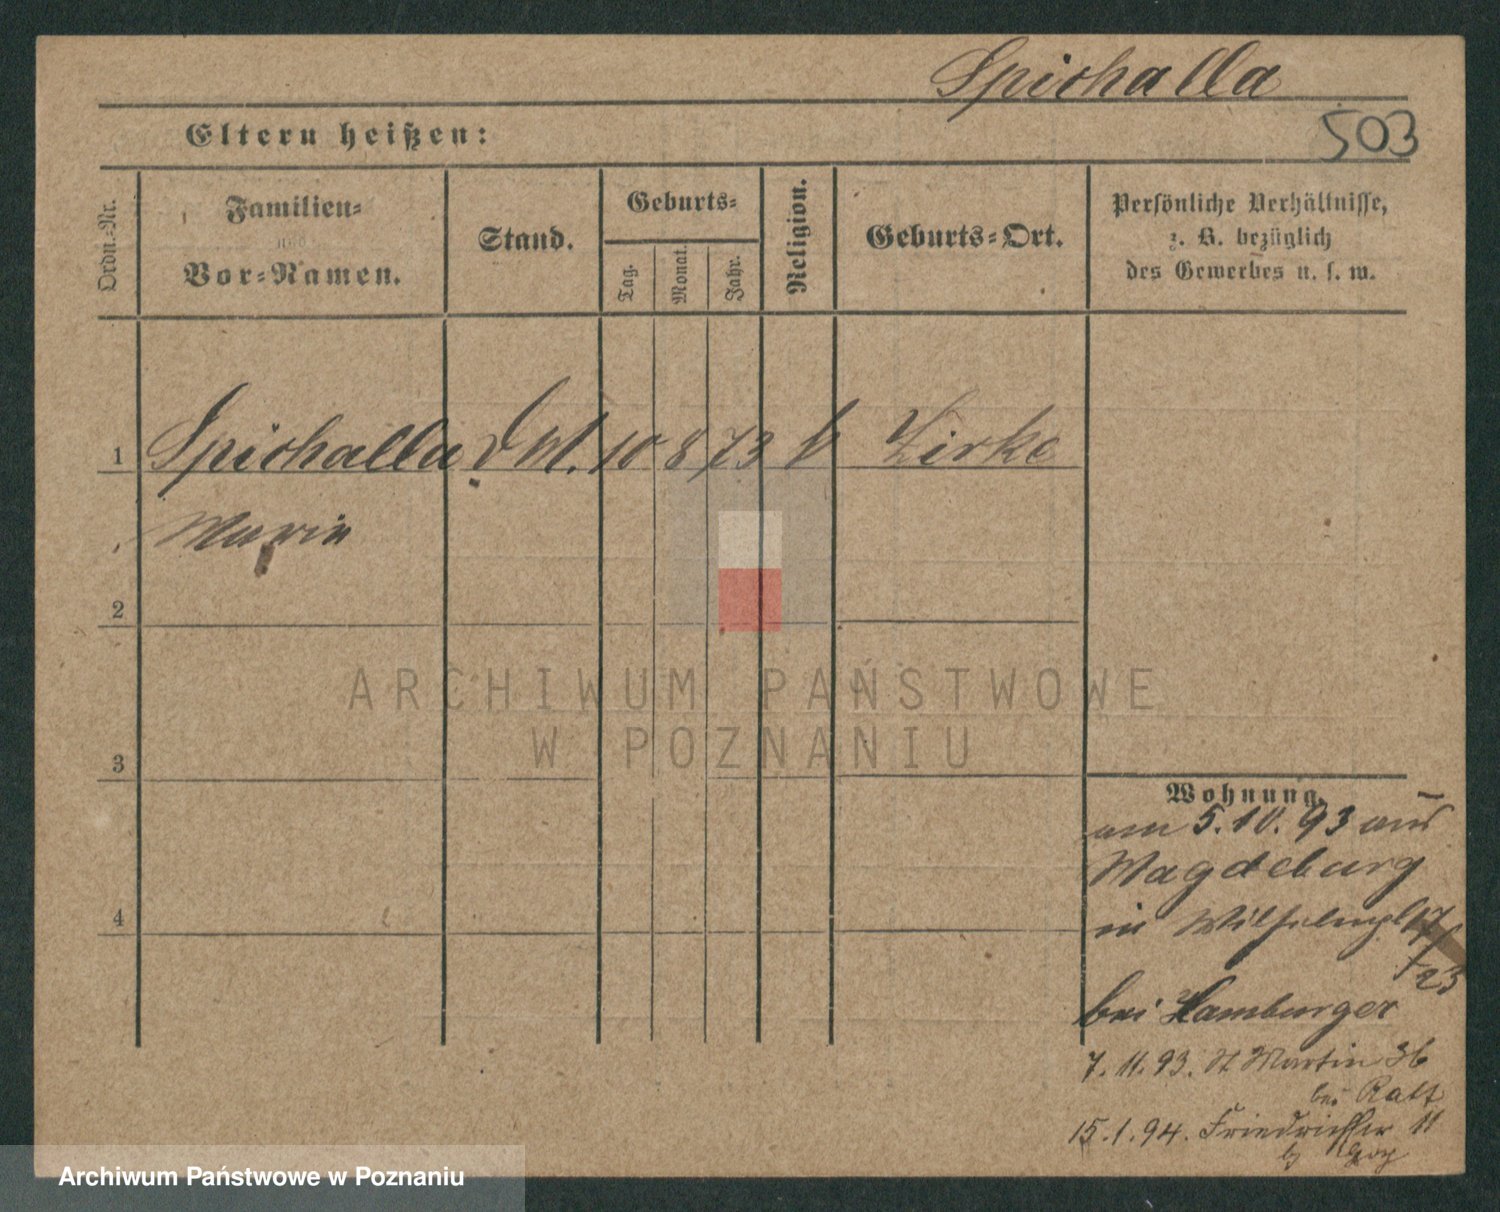 Spichalla
503
Eltern heißen:
Ordn.-Nr.
Familien-
und
Vor-Namen.
Stand.
Geburts-
Tag.
Monat.
Jahr.
Religion.
Geburts-Ort.
Persönliche Verhältnisse,
z. B. bezüglich
des Gewerbes u. s. w.
1 Spichalla D.M. 10 8 73 k Zirke
Marie
2
3
4
Wohnung.
am 5.10.93 aus
Magdeburg
in Wilhelmspl 17/
23
bei Hamburger
7.11.93. St Martin 36
bei
15.1.94. Friedrichstr 11
b
ARCHIWUM PAŃSTWOWE
W POZNANIU
Archiwum Państwowe w Poznaniu